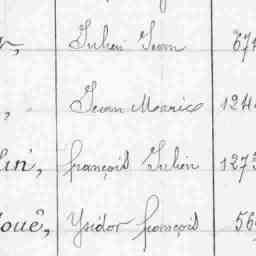 Julien Jean 67
Jean Marrie 124
lin, françois Julien 1273
oué, Ysidor françois 56